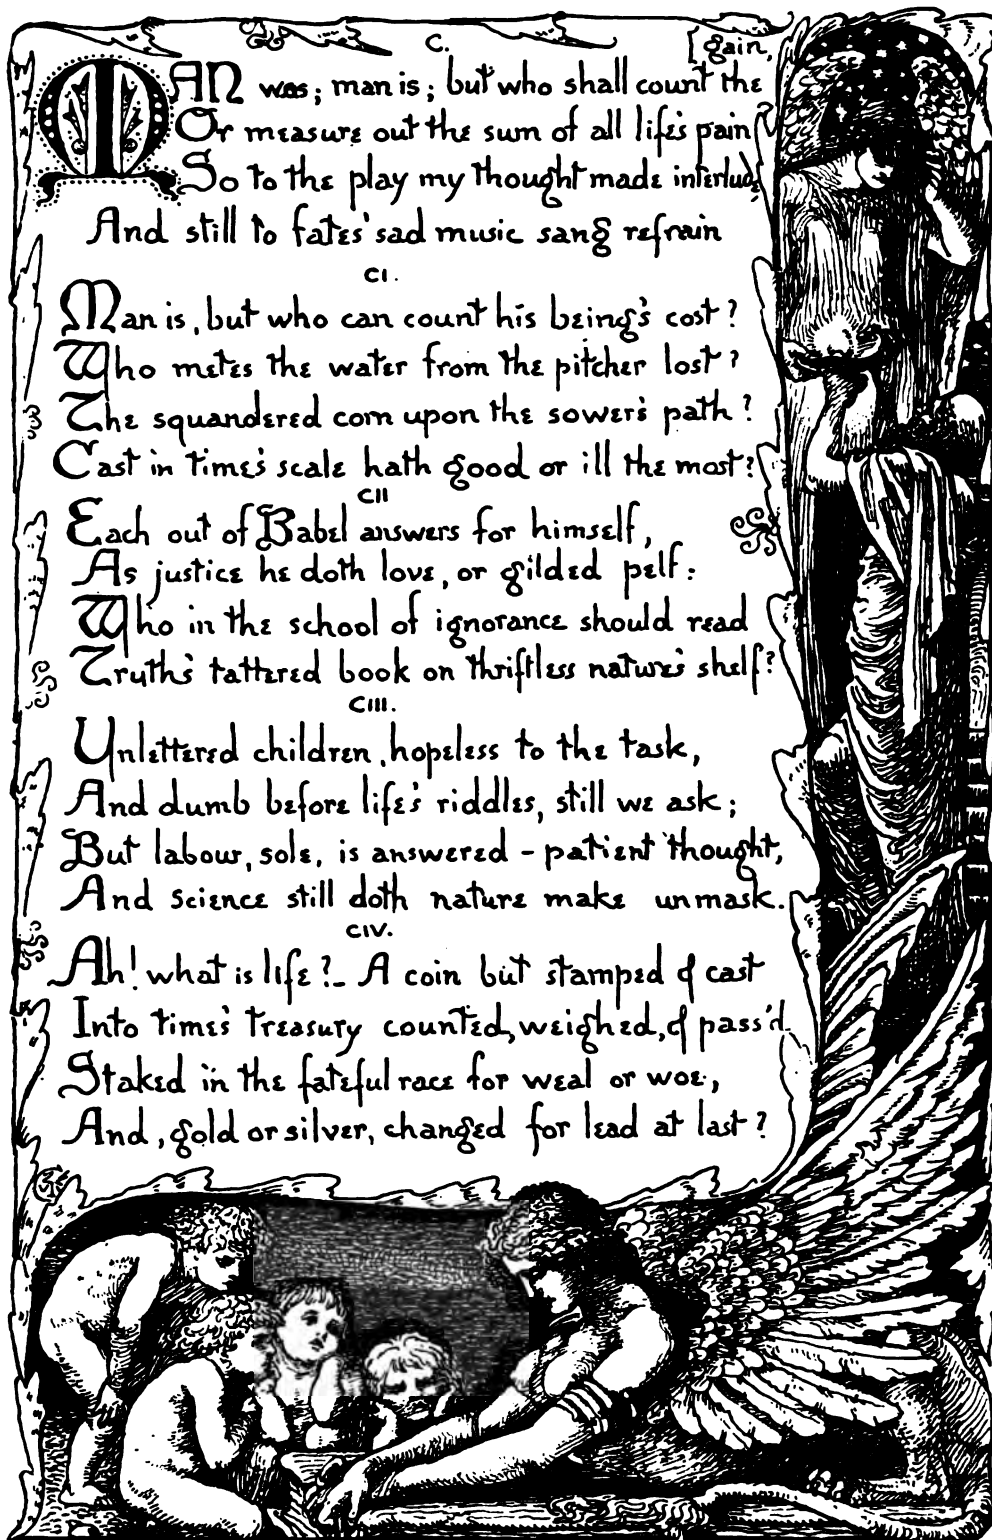 C.
[gain,
MAN was; man is; but who shall count the
Or measure out the sum of all life's pain
So to the play my thought made interlude
And still to fates' sad music sang refrain
CI.
Man is, but who can count his being's cost?
Who metes the water from the pitcher lost?
The squandered corn upon the sower's path?
Cast in time's scale hath good or ill the most?
CII
Each out of Babel answers for himself,
As justice he doth love, or gilded pelf:
Who in the school of ignorance should read
Truth's tattered book on thriftless nature's shelf?
CIII.
Unlettered children, hopeless to the task,
And dumb before life's riddles, still we ask;
But labour, sole, is answered - patient thought,
And science still doth nature make unmask.
CIV.
Ah! what is life?_ A coin but stamped & cast
Into time's treasury counted, weighed, & pass'd
Staked in the fateful race for weal or woe,
And, gold or silver, changed for lead at last?